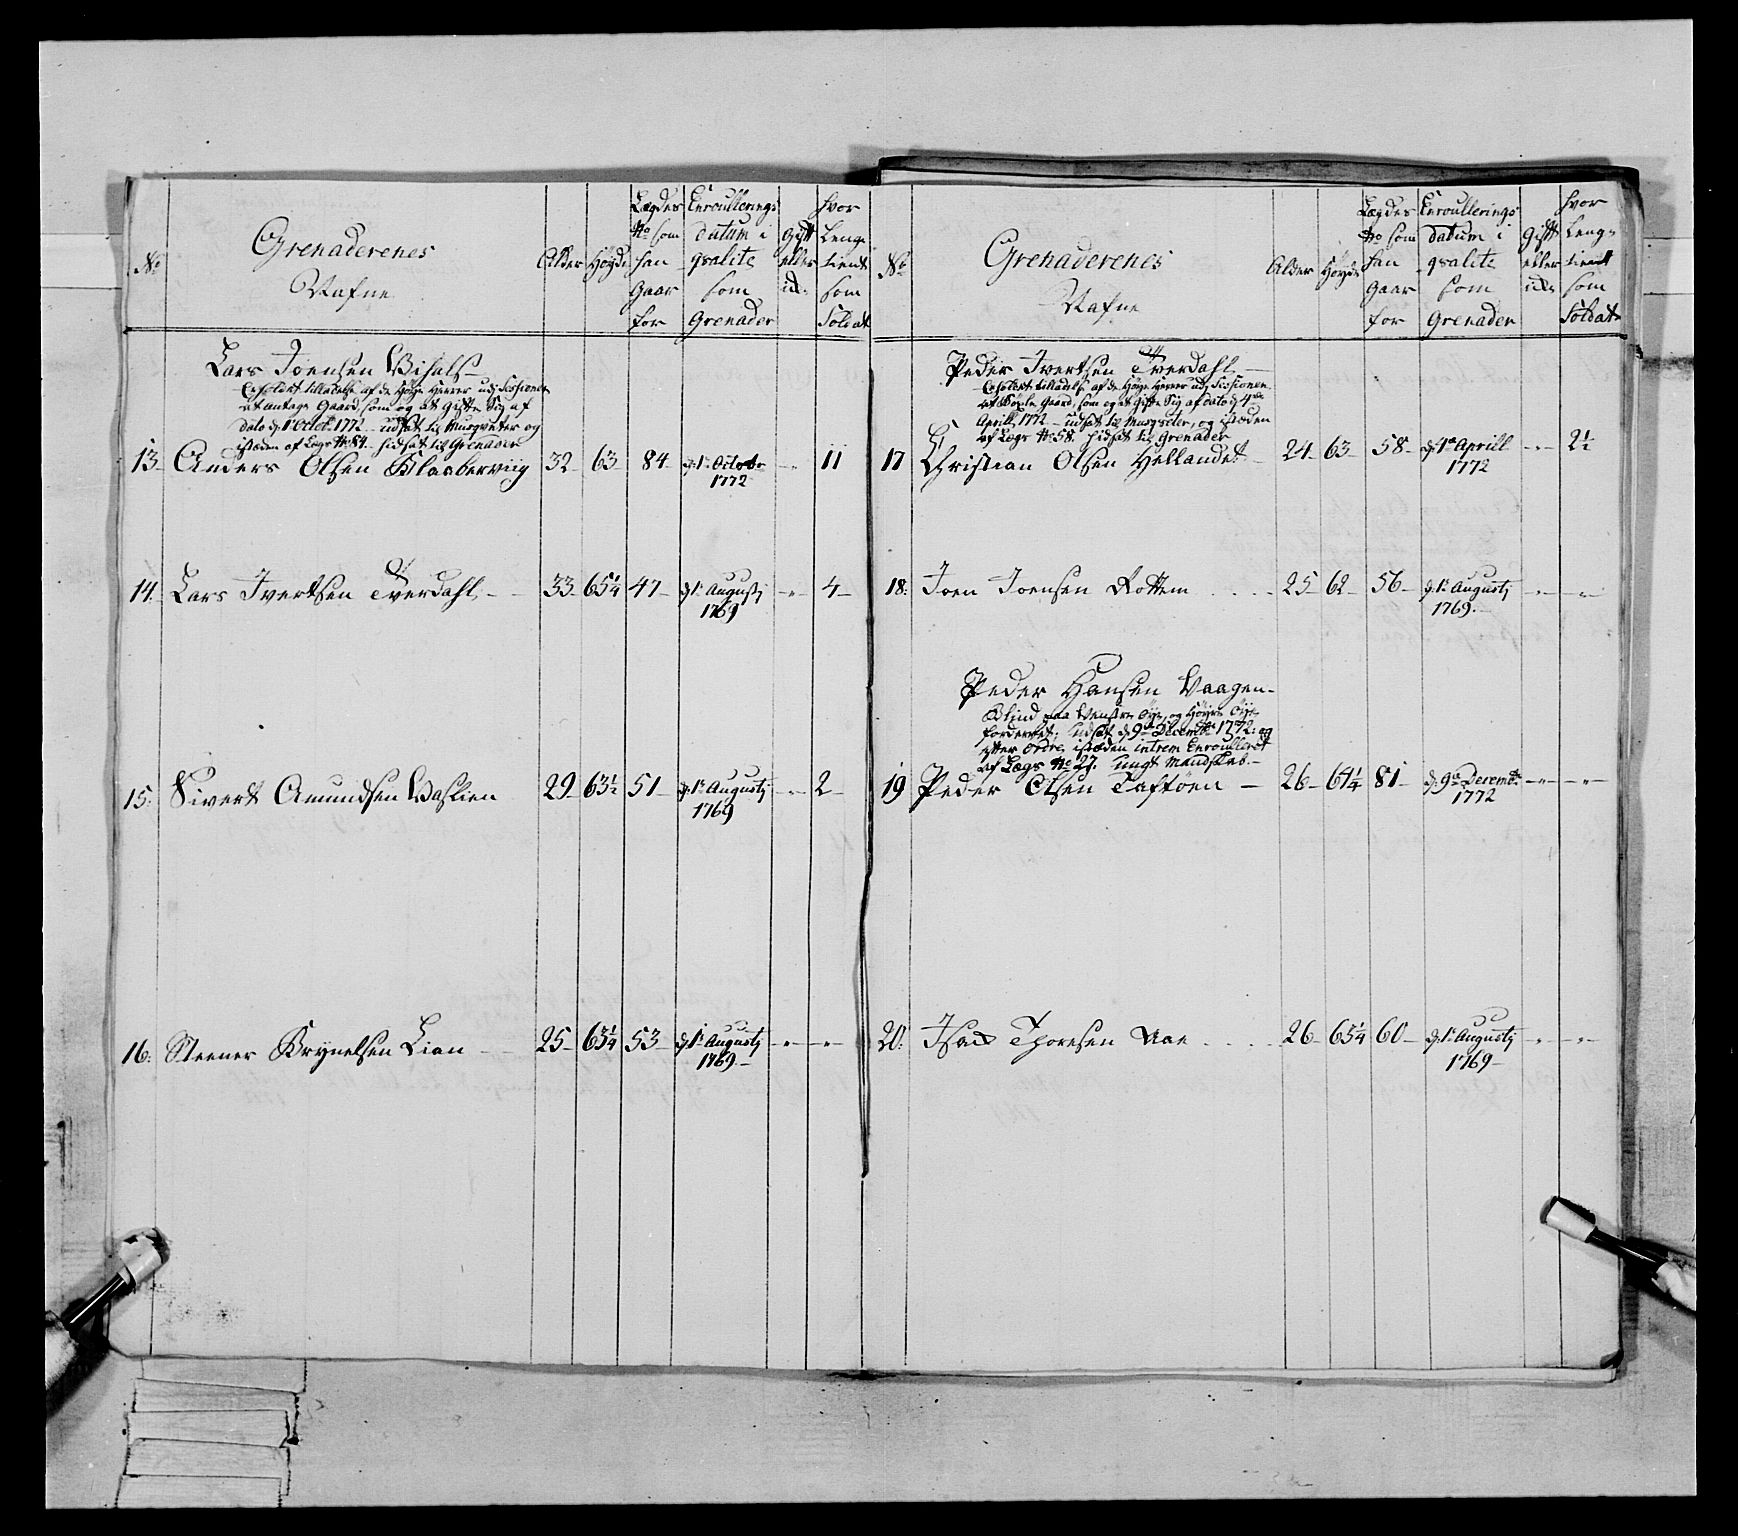 No
Grenaderenes
Nafne
Alder
Høyde
Lægdes
No som
han
gaar
for
Enroullerings
datum i
qvalite
som
Grenader
Gift
eller
ide
hvor
Lenge
tient
som
Soldat
Lars Joensen
Erholdet tilladelse af de Høye Herrer ud Sessionen
at antage Gaard, som og at gifte Sig af
dato d 1te Octob. 1772 udsat til Musqveter og
isteden af Lægs No 84 hidsat til Grenader
13 Anders Olsen Klaaberviig 32 63 84 d 1te Octobr 11
1772
14. Lars Ivertsen Tverdahl 33 65¼ 47 d 1te Augusti 4
1769
15. Sivert Amundsen Vaslien 29 63½ 51 d 1te Augustij 2
1769
16. Steener Brynelsen Lien 25 63¼ 53 d 1te Augustij
1769
No
Grenaderenes
Nafne
Alder
Høyde
Lægdes
No som
han
gaar
for
Enroullerings
datum i
qvalite
som
Grenader
Gift
eller
ide
hvor
Lenge
tient
som
Soldat
Peder Ivertsen Tverdahl
Erholdet tilladelse af de Høye Herrer ud Sessionen
at Gaard, som og at gifte Sig af dato d 4de
Aprill 1772 udsat til Musqveter, og isteden
af Lægs No 58. hidsat til Grenader
17 Christian Olsen Hellandet 24 63 58 d 4de Aprill 2½
1772
18. Joen Joensen Rottem 25 62 56 d. 1te Augustij
1769.
Peder Hansen Vaagen
Blind paa Venstre Øye, og Høyre Øye
fordervet; udsat d 9de Decembr 1772: og
efter ordre isteden intrem Enroulleret
af Lægs No 27. ungt Mandskab.
19 Peder Olsen Taftøen 26 64¼ 81 d. 9de Decembr
1772
20. Isach Thoresen Aae 26 65¼ 60 d. 1te Augustij
1769